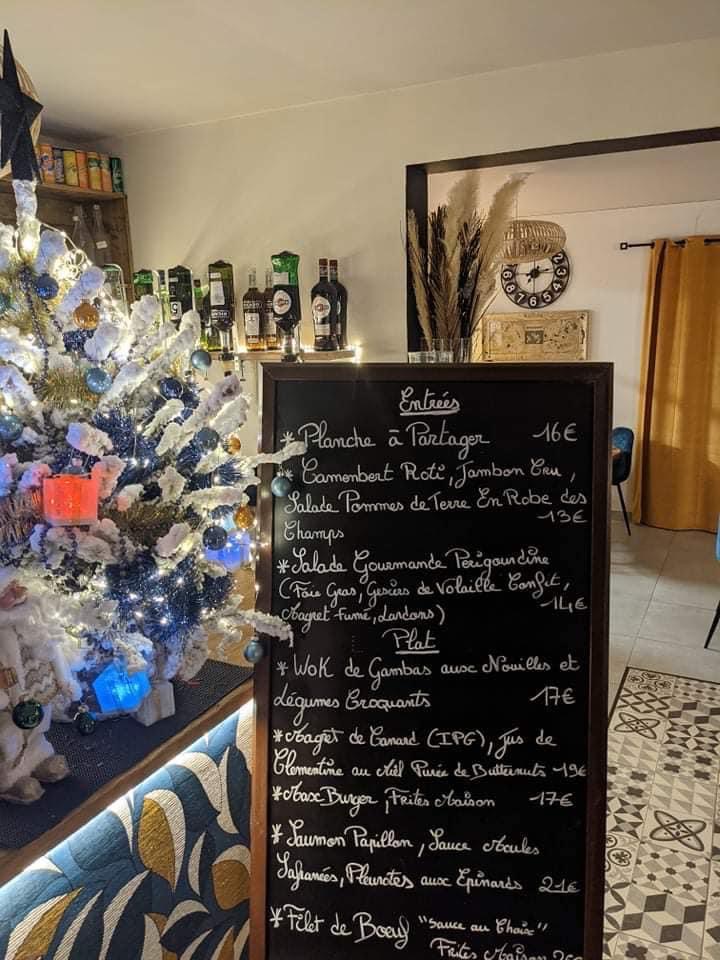 Entrées
* Planche à Partager 16€
* Camenbert Roti, Jambon Cru,
Salade Pommes de Terre En Robe des
Champs 13€
* Salade Gourmande Périgourdine
(Foie Gras, Gesiers de Volaille Confit,
Magret Fumé, Lardons) 14€
Plat
* Wok de Gambas aux Nouilles et
Légumes Croquants 17€
* Magret de Canard (IPG), Jus de
Clementine au Miel Purée de Butternuts 19€
* Max Burger, Frites Maison 17€
* Saumon Papillon, Sauce Moules
Safranées, Pleurotes aux Epinards 21€
* Filet de Boeuf "Sauce au Choix"
Frites Maison